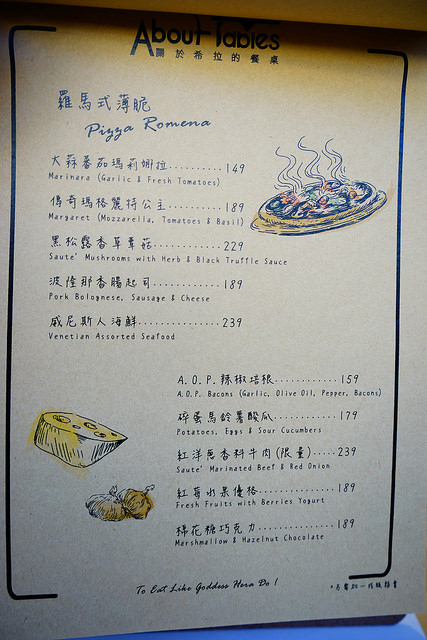 About Tables
關於希拉的餐桌
羅馬式薄脆
Pizza Romena
大蒜蕃茄瑪莉娜拉.......... 149
Marinara (Garlic & Fresh Tomatoes)
傳奇瑪格麗特公主.......... 189
Margaret (Mozzarella, Tomatoes & Basil)
黑松露香草蕈菇............. 229
Saute' Mushrooms with Herb & Black Truffle Sauce
波隆那香腸起司............. 189
Pork Bolognese, Sausage & Cheese
威尼斯人海鮮................ 239
Venetian Assorted Seafood
A.O.P. 辣椒培根............ 159
A.O.P. Bacons (Garlic, Olive Oil, Pepper, Bacons)
碎蛋馬鈴薯酸瓜............. 179
Potatoes, Eggs & Sour Cucumbers
紅洋蔥香料牛肉(限量)..... 239
Saute' Marinated Beef & Red Onion
紅莓水果優格................ 189
Fresh Fruits with Berries Yogurt
棉花糖巧克力................ 189
Marshmallow & Hazelnut Chocolate
To Eat Like Goddess Hera Do !